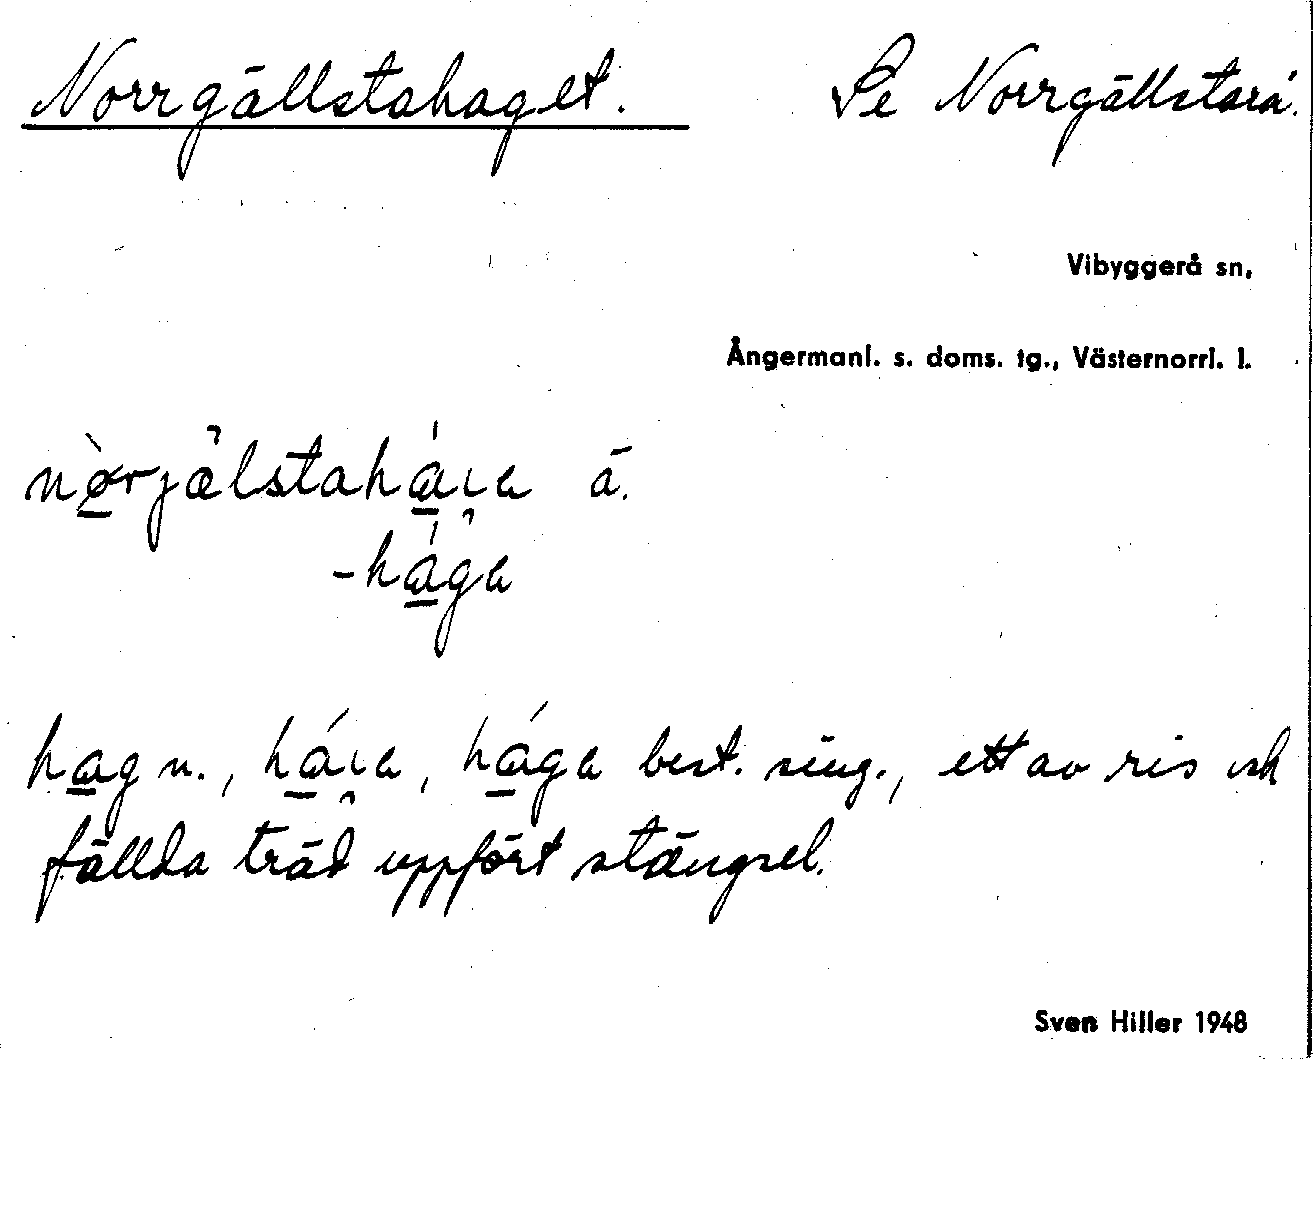 Norrgällstahaget. Se Norrgällstarå.
Vibyggerå sn,
Ångermanl. s. doms. tg., Västernorrl. l.
nòrjälstaháıa ä.
-hága
hag n., háıa, hága best. sing., ett av ris och
fällda träd uppfört stängsel.
Sven Hiller 1948